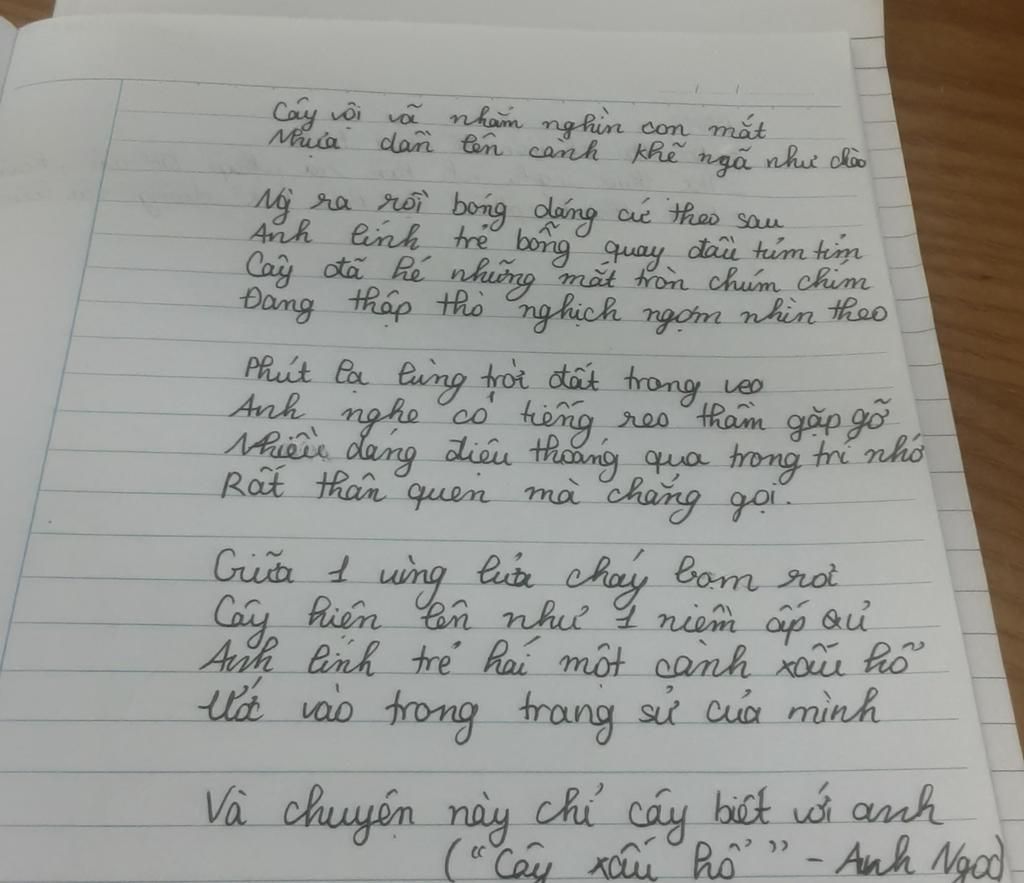 Cây vội vã nhắm nghìn con mắt
Nhựa dồn lên cành khẽ ngã như chào
Nỳ ra rồi bóng dáng cứ theo sau
Anh lính trẻ bỗng quay đầu tủm tỉm
Cây đã hé những mắt tròn chúm chím
Đang thấp thò nghịch ngợm nhìn theo
Phút lạ lùng trời đất trong veo
Anh nghe có tiếng reo thầm gặp gỡ
Nhiều dáng điệu thoáng qua trong trí nhớ
Rất thân quen mà chẳng gọi.
Giữa 1 vùng lửa cháy bom rơi
Cây hiện lên như 1 niềm ấp ủ
Anh lính trẻ hái một cành xấu hổ
Ướt vào trong trang sử của mình
Và chuyện này chỉ cây biết với anh
("Cây xấu hổ" - Anh Ngọc)